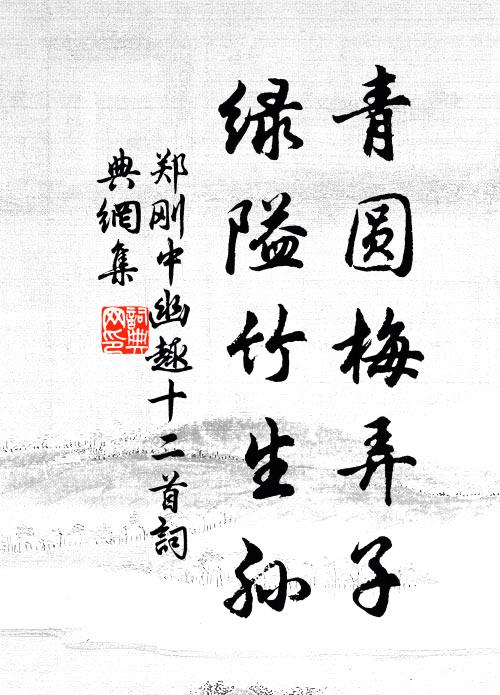 青圆梅弄子
绿隘竹生孙
郑刚中幽趣十二首詞
典網集
詞典网印